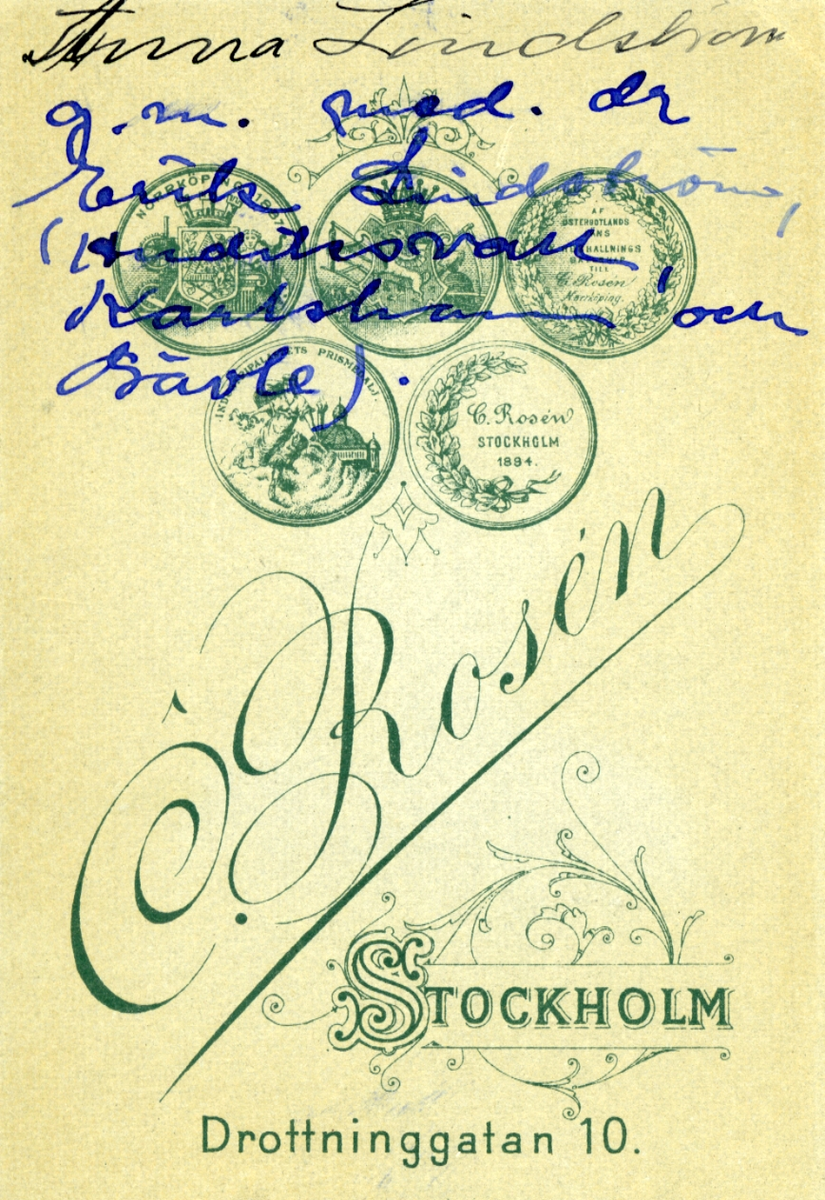 Anna Lindström
g.m. med. dr
Erik Lindström,
(Hudiksvall,
Karlshamn och
Gävle).
NORRKÖPING 1887
AF
ÖSTERGÖTLANDS
LÄNS
HUSHÅLLNINGS
TILL
C. Rosén
Norrköping.
PRISMEDALJ
C. Rosén
STOCKHOLM
1894.
C. Rosén
STOCKHOLM
Drottninggatan 10.